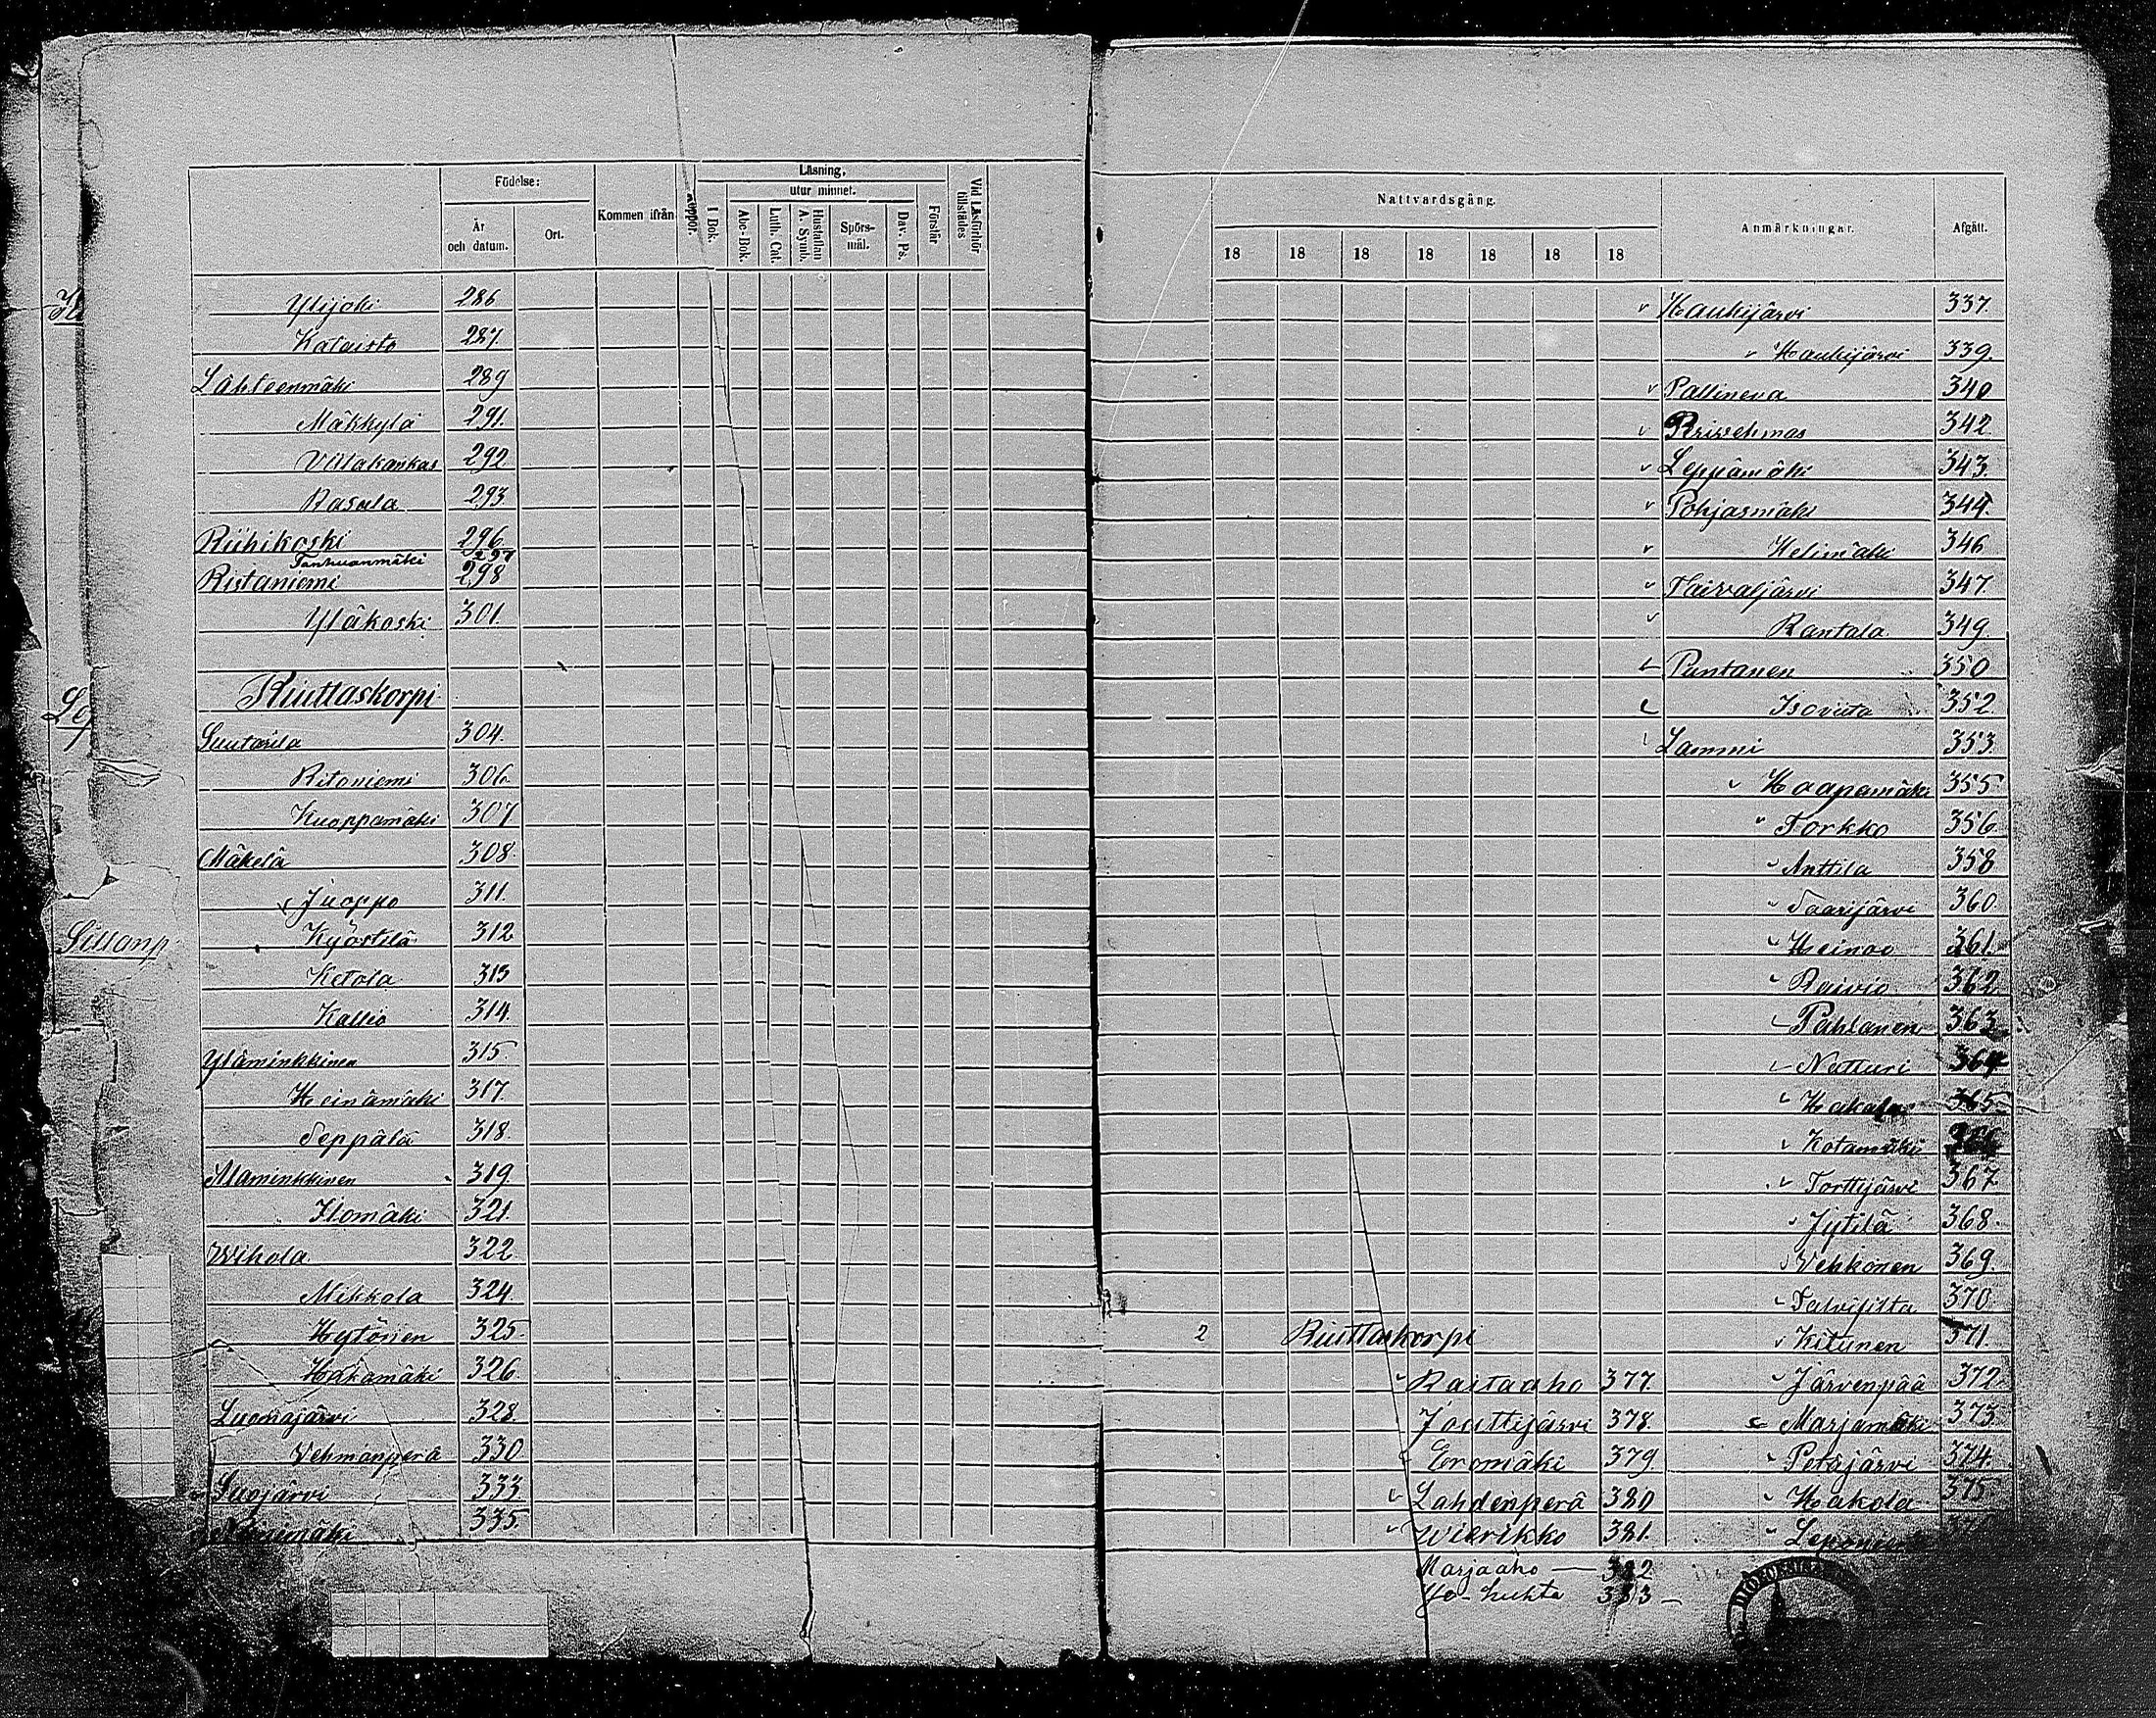 Födelse:
Kommen ifrån
Läsning.
utur minnet.
År och datum.
Ort.
I Bok.
Abc-Bok.
Luth. Cat.
Hustaflan A. Symb.
Spörs-mål.
Dav. Ps.
Förstår
Vid Läsförhör tillstädes
Ylijoki 286
Kataisto 287.
Lähteenmäki 289
Mäkkylä 291.
Viitakankas 292
Rasula 293
Riihikoski 296.
Tanhuanmäki 297
Ristaniemi 298
Yläkoski 301.
Riuttaskorpi
Suutarila 304.
Ritaniemi 306
Kuoppamäki 307
Mäkelä 308.
Juoppo 311.
Kyöstilä 312
Ketola 313
Kallio 314.
Yläminkkinen 315.
Heinämäki 317.
Seppälä 318.
Alaminkkinen 319.
Ilomäki 321.
Wihola 322.
Mikkola 324
Hytönen 325.
Hakamäki 326.
Luomajärvi 328.
Vehmanperä 330.
Suojärvi 333
335
Sillanp
Nattvardsgång.
Anmärkningar.
Afgått.
18 18 18 18 18 18 18
Haukijärvi 337.
Haukijärvi 339.
Pallineva 340
342.
Leppämäki 343.
Pohjasmäki 344.
Helimäki 346
Taivaljärvi 347.
Rantala 349.
Pantanen 350
Isoviita 352
Lammi 353
Haapamäki 355
Torkko 356
Anttila 358
Saarijärvi 360
Heinoo 361.
Raivio 362.
Pahlanen 363
Natturi 364
Hakala 365
Kotamäki
Torttijärvi 367
Jytilä 368.
Vehkonen 369.
Talvisilta 370
2 Riuttaskorpi
Kitunen 371.
Raitaaho 377. Järvenpää 372
Jouttijärvi 378. Marjamäki 373.
Eromäki 379 Petäjärvi 374
Lahdenperä 380 Hakola 375.
Wierikko 381.
Marjaaho — 382
Yö-kuhta 383 —